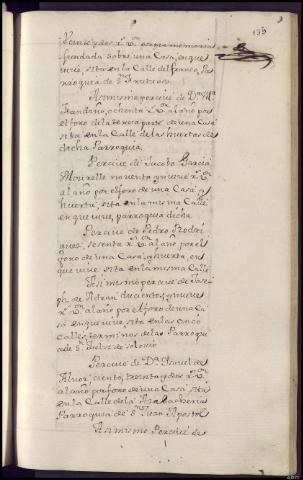 193
Veinte y dos rs. Vn. de pia memoria
fundada sobre una Casa, en que
vive, sita en la Calle del franco, Pa
rroquia de Sn. Fructuoso.
Asimismo percive de Dn.
ochenta rs. Vn. al año por
el foro de la tercera parte de una Casa
sita en la Calle de las huertas de
dicha Parroquia.
Percive de Jacobo Garcia
Mourelle noventa y nueve rs. Vn.
al año por el foro de una Casa, y
huerta, sita en la misma Calle
en que vive, parroquia dicha
Percive de Pedro Rodri
guez, sesenta rs. Vn. al año por el
foro de una Casa, y huerta, en
que vive sita en la misma Calle
Asimismo percive de Jose
ph de ducientos, y nueve
rs. Vn. al año por el foro de una Ca
sa en que vive, sita en las cinco
calles, terminos de la Parroqu
a de Sn. Felix de solovio
Percive de Dn. de
ciento, treinta y dos rs. Vn.
al año por foro de una Casa sita
en la Calle de la Azabacheria
Parroquia de Sn. Juan Apostol
Asimismo Percive de